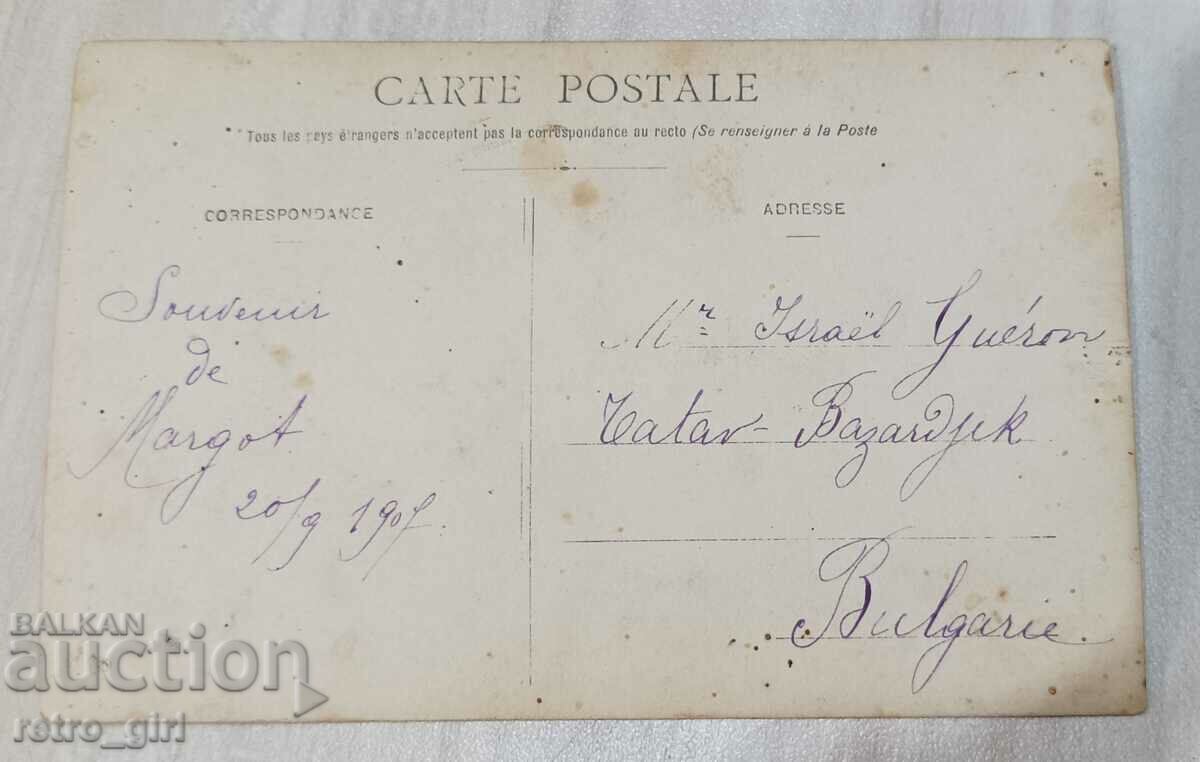 CARTE POSTALE
Tous les pays étrangers n'acceptent pas la correspondance au recto (Se renseigner à la Poste
CORRESPONDANCE
Souvenir
de
Margot
20/9 1907.
ADRESSE
Mr Israël Guéron
Tatar-Bazardjek
Bulgarie.
BALKAN
auction
retro_girl